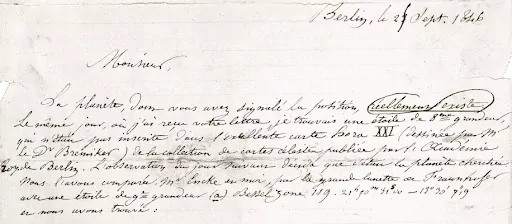 Berlin, le 25 Sept. 1846
Monsieur,
La planète, dont vous avez signalé la position, réellement existe
Le même jour, où j'ai reçu votre lettre, je trouvais une étoile de 8me grandeur,
qui n'était pas inscrite dans l'excellente carte Hora XXI, (dessinée par Mr
le Dr Bremiker) de la collection de cartes célestes publiée par l'Académie
royale de Berlin. L'observation du jour suivant décida que c'était la planète cherchée
Nous l'avons comparée, Mr Encke et moi, par la grande lunette de Fraunhofer
avec une étoile de 9me grandeur (a) Bessel Zone 119. 21h 50m
et nous avons trouvé: